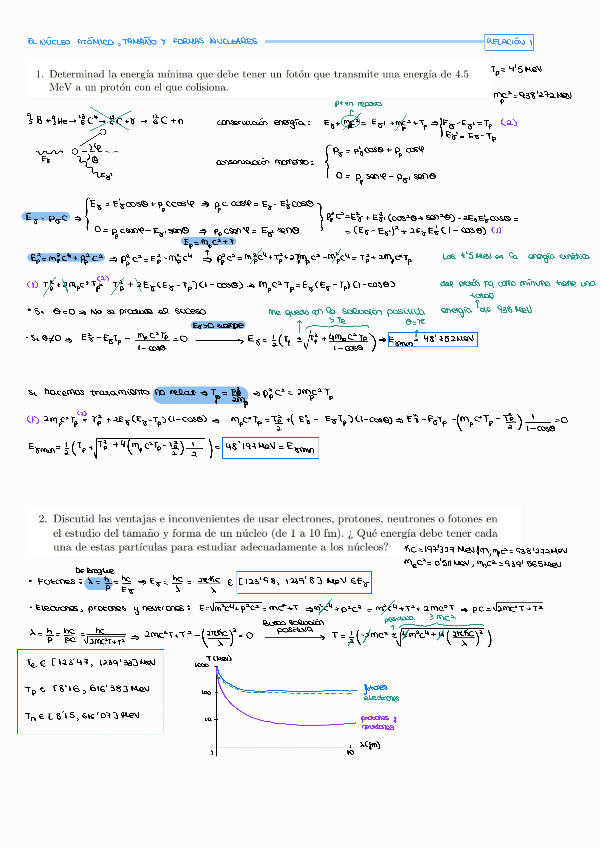 EL NÚCLEO ATÓMICO, TAMAÑO Y FORMAS NUCLEARES
RELACIÓN 1
1. Determinad la energía mínima que debe tener un fotón que transmite una energía de 4.5
MeV a un protón con el que colisiona.
Tp = 4'5 MeV
mpc² = 938'272 MeV
conservación energía:
pt en reposo
Eγ + mpc² = Eγ' + mpc² + Tp ⇒ Eγ - Eγ' = Tp (2)
Eγ' = Eγ - Tp
conservación momento:
pγ = pγ' cosθ + pp cosφ
0 = pp senφ - pγ' senθ
Eγ = pγ c ⇒
Eγ = Eγ' cosθ + pp c cosφ ⇒ pp c cosφ = Eγ - Eγ' cosθ
0 = pp c senφ - Eγ' senθ ⇒ pp c senφ = Eγ' senθ
pp²c² = Eγ² + Eγ'² (cos²θ + sen²θ) - 2Eγ Eγ' cosθ =
= (Eγ - Eγ')² + 2Eγ Eγ' (1 - cosθ) (1)
Ep = mpc² + T
Ep² = mp²c⁴ + pp²c² ⇒ pp²c² = Ep² - mp²c⁴ ⇒ pp²c² = mp²c⁴ + Tp² + 2Tp mpc² - mp²c⁴ = Tp² + 2mpc²Tp
Los 4'5 MeV es la energía cinética
(1) Tp² + 2mpc²Tp = Tp² + 2Eγ(Eγ - Tp)(1 - cosθ) ⇒ mpc²Tp = Eγ(Eγ - Tp)(1 - cosθ)
del protón pq como mínimo tiene una
energía total de 938 MeV
• Si θ=0 ⇒ No se produce el suceso
me quedo con la solución positiva
Eγ>0 siempre
> Tp
θ=π
• Si θ≠0 ⇒ Eγ² - EγTp - mpc²Tp / 1-cosθ = 0 → Eγ = 1/2 (Tp ± √(Tp² + 4mpc²Tp / 1-cosθ)) ⇒ Eγmin = 48'252 MeV
Si hacemos tratamiento no relat ⇒ Tp = pp²/2mp ⇒ pp²c² = 2mpc²Tp
(1) 2mpc²Tp = Tp² + 2Eγ(Eγ - Tp)(1 - cosθ) ⇒ mpc²Tp = Tp²/2 + (Eγ² - EγTp)(1 - cosθ) ⇒ Eγ² - EγTp - (mpc²Tp - Tp²/2) 1/1-cosθ = 0
Eγmin = 1/2 (Tp + √(Tp² + 4(mpc²Tp - Tp²/2) 1/2)) = 48'197 MeV = Eγmin
2. Discutid las ventajas e inconvenientes de usar electrones, protones, neutrones o fotones en
el estudio del tamaño y forma de un núcleo (de 1 a 10 fm). ¿ Qué energía debe tener cada
una de estas partículas para estudiar adecuadamente a los núcleos?
ħc = 197'327 MeV fm, mpc² = 938'272 MeV
mec² = 0'511 MeV, mnc² = 939'565 MeV
De Broglie
• Fotones: λ = h/p = hc/Eγ ⇒ Eγ = hc/λ = 2πħc/λ ∈ [123'98, 1239'8] MeV ∈ Eγ
• Electrones, protones y neutrones: E = √(m²c⁴ + p²c²) = mc² + T ⇒ m²c⁴ + p²c² = m²c⁴ + T² + 2mc²T ⇒ pc = √(2mc²T + T²)
λ = h/p = hc/pc = hc/√(2mc²T + T²) ⇒ 2mc²T + T² - (2πħc/λ)² = 0
Busco solución positiva
Te ∈ [123'47, 1239'33] MeV
Tp ∈ [8'16, 616'38] MeV
Tn ∈ [8'15, 616'07] MeV
T (MeV)
1000
100
10
fotones
electrones
protones y
neutrones
λ (fm)
1
10